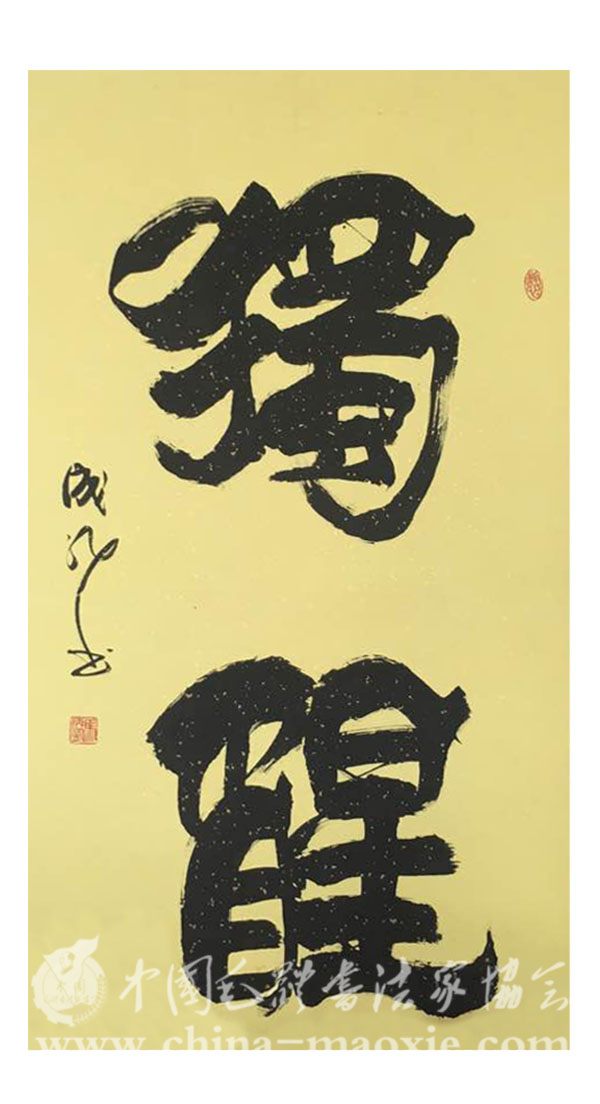 獨醒
中国毛体书法家协会
www.china-maoxie.com